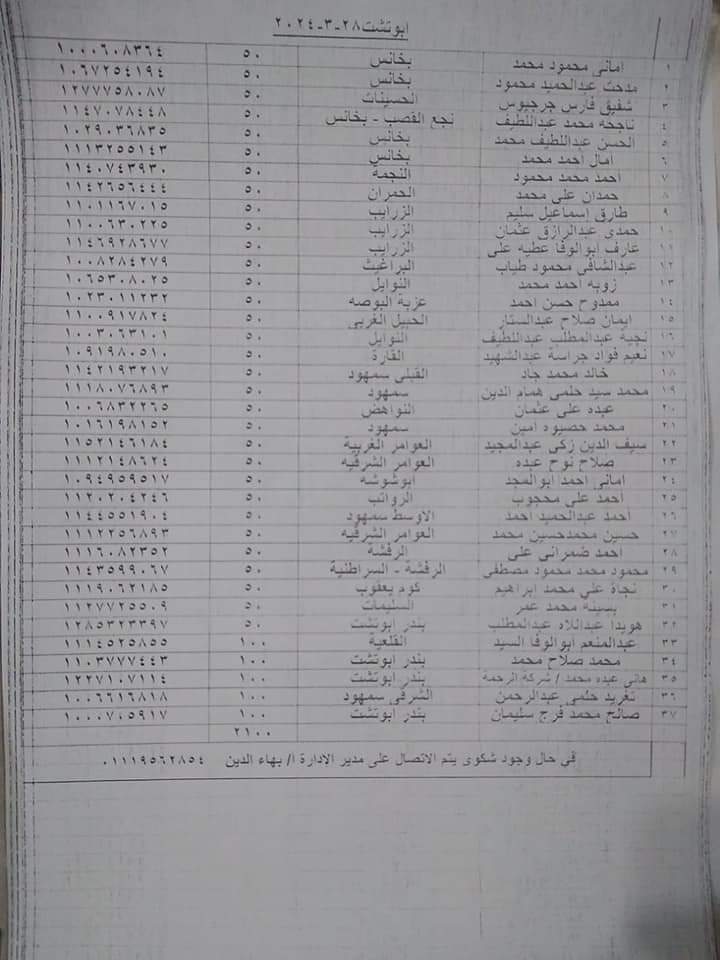 ابوتشت ٢٨-٣-٢٠٢٤
١ امانى محمود محمد بخانس ٥٠ ١٠٠٠٦٠٨٣٦٤
٢ مدحت عبدالحميد محمود بخانس ٥٠ ١٠٦٧٢٥٤١٩٤
٣ شفيق فارس جرجيوس الحسينات ٥٠ ١٢٧٧٧٥٨٠٨٧
٤ ناجحه محمد عبداللطيف نجع القصب - بخانس ٥٠ ١١٤٧٠٧٨٤٤٨
٥ الحسن عبداللطيف محمد بخانس ٥٠ ١٠٢٩٠٣٦٨٣٥
٦ امال احمد محمد بخانس ٥٠ ١١١٣٢٥٥١٤٣
٧ احمد محمد محمود النجمة ٥٠ ١١٤٠٧٤٣٩٣٠
٨ حمدان على محمد الحمران ٥٠ ١١٤٢٦٥٦٤٤٤
٩ طارق اسماعيل سليم الزرايب ٥٠ ١١٠١١٦٧٠١٥
١٠ حمدى عبدالرازق عثمان الزرايب ٥٠ ١١٠٠٦٣٠٢٢٥
١١ عارف ابوالوفا عطيه على الزرايب ٥٠ ١١٤٦٩٢٨٦٧٧
١٢ عبدالشافى محمود طياب البراغيث ٥٠ ١٠٠٨٢٨٤٢٧٩
١٣ زوبه احمد محمد النوايل ٥٠ ١٠٦٥٣٠٨٠٢٥
١٤ ممدوح حسن احمد عزبة البوصه ٥٠ ١٠٢٣٠١١٢٣٢
١٥ ايمان صلاح عبدالستار الحبيل الغربى ٥٠ ١١٠٠٩١٧٨٢٤
١٦ نجية عبدالمطلب عبداللطيف النوايل ٥٠ ١٠٠٣٠٦٣١٠١
١٧ نعيم فواد جراسة عبدالشهيد القارة ٥٠ ١٠٩١٩٨٠٥١٠
١٨ خالد محمد جاد القبلى سمهود ٥٠ ١١٤٢١٩٣٢١٧
١٩ محمد سيد حلمى همام الدين سمهود ٥٠ ١١١٨٠٧٦٨٩٣
٢٠ عبده على عثمان النواهض ٥٠ ١٠٠٦٨٣٢٢٦٥
٢١ محمد حصبوه امين سمهود ٥٠ ١٠١٦١٩٨١٥٢
٢٢ سيف الدين زكى عبدالمجيد العوامر الغربية ٥٠ ١١٥٢١٤٦١٨٤
٢٣ صلاح نوح عبده العوامر الشرقيه ٥٠ ١١١٢١٤٨٦٢٤
٢٤ امانى احمد ابوالمجد ابوشوشه ٥٠ ١٠٩٤٩٥٩٥١٧
٢٥ احمد على محجوب الرواتب ٥٠ ١١٢٠٢٠٤٢٤٦
٢٦ احمد عبدالحميد احمد الاوسط سمهود ٥٠ ١١٤٤٥٥١٩٠٤
٢٧ حسين محمدحسين محمد العوامر الشرقيه ٥٠ ١١١٢٢٥٦٨٩٣
٢٨ احمد ضمرانى على الرفشة ٥٠ ١١١٦٠٨٢٣٥٢
٢٩ محمود محمد محمود مصطفى الرفشة - السراطنية ٥٠ ١١٤٣٥٩٩٠٦٧
٣٠ نجاة على محمد ابراهيم كوم يعقوب ٥٠ ١١١٩٠٦٢١٨٥
٣١ بسينه محمد عمر السليمات ٥٠ ١١٢٧٧٢٥٥٠٩
٣٢ هويدا عبداللاه عبدالمطلب بندر ابوتشت ٥٠ ١٢٨٥٣٢٣٣٩٧
٣٣ عبدالمنعم ابوالوفا السيد القلعية ١٠٠ ١١١٤٥٢٥٨٥٥
٣٤ محمد صلاح محمد بندر ابوتشت ١٠٠ ١١٠٣٧٧٧٤٤٣
٣٥ هانى عبده محمد / شركة الرحمة بندر ابوتشت ١٠٠ ١٢٢٧١٠٧١١٤
٣٦ تغريد حلمى عبدالرحمن الشرقى سمهود ١٠٠ ١٠٠٦٦١٦٨١٨
٣٧ صالح محمد فرج سليمان بندر ابوتشت ١٠٠ ١٠٠٠٧٠٥٩١٧
٢١٠٠
فى حال وجود شكوى يتم الاتصال على مدير الادارة ا/ بهاء الدين ٠١١١٩٥٦٢٨٥٤